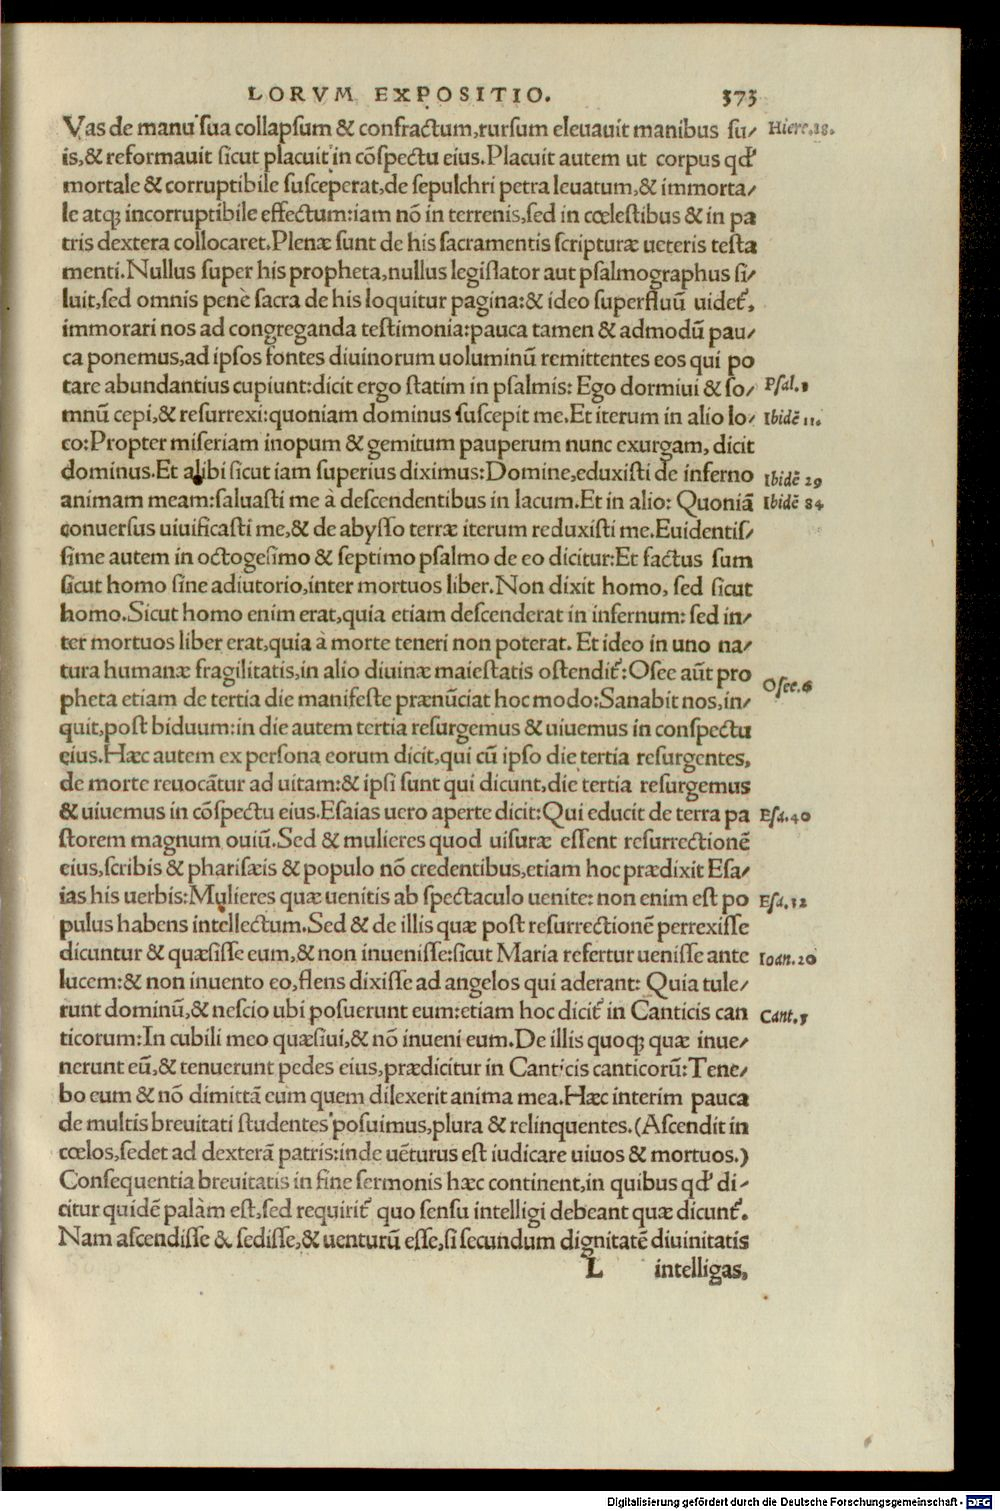 LORVM EXPOSITIO. 373
Vas de manu sua collapsum & confractum,rursum eleuauit manibus su/ Hiere.18.
is,& reformauit sicut placuit in cõspectu eius.Placuit autem ut corpus qď
mortale & corruptibile susceperat,de sepulchri petra leuatum,& immorta/
le atq; incorruptibile effectum:iam nõ in terrenis,sed in cœlestibus & in pa
tris dextera collocaret.Plenæ sunt de his sacramentis scripturæ ueteris testa
menti.Nullus super his propheta,nullus legislator aut psalmographus si/
luit,sed omnis penè sacra de his loquitur pagina:& ideo superfluũ uidet̃,
immorari nos ad congreganda testimonia:pauca tamen & admodũ pau/
ca ponemus,ad ipsos fontes diuinorum uoluminũ remittentes eos qui po
tare abundantius cupiunt:dicit ergo statim in psalmis: Ego dormiui & so/ Psal.3
mnũ cepi,& resurrexi:quoniam dominus suscepit me.Et iterum in alio lo/ Ibidẽ 11.
co:Propter miseriam inopum & gemitum pauperum nunc exurgam, dicit
dominus.Et alibi sicut iam superius diximus:Domine,eduxisti de inferno Ibidẽ 29
animam meam:saluasti me à descendentibus in lacum.Et in alio: Quoniã Ibidẽ 84
conuersus uiuificasti me,& de abysso terræ iterum reduxisti me.Euidentis/
sime autem in octogesimo & septimo psalmo de eo dicitur:Et factus sum
sicut homo sine adiutorio,inter mortuos liber.Non dixit homo, sed sicut
homo.Sicut homo enim erat,quia etiam descenderat in infernum: sed in/
ter mortuos liber erat,quia à morte teneri non poterat. Et ideo in uno na/
tura humanæ fragilitatis,in alio diuinæ maiestatis ostendit̃:Osee aũt pro
pheta etiam de tertia die manifeste prænũciat hoc modo:Sanabit nos,in/ Osee.6
quit,post biduum:in die autem tertia resurgemus & uiuemus in conspectu
eius.Hæc autem ex persona eorum dicit,qui cũ ipso die tertia resurgentes,
de morte reuocãtur ad uitam:& ipsi sunt qui dicunt,die tertia resurgemus
& uiuemus in cõspectu eius.Esaias uero aperte dicit:Qui educit de terra pa Esa.40
storem magnum ouiũ.Sed & mulieres quod uisuræ essent resurrectionẽ
eius,scribis & pharisæis & populo nõ credentibus,etiam hoc prædixit Esa/
ias his uerbis:Mulieres quæ uenitis ab spectaculo uenite: non enim est po Esa.32
pulus habens intellectum.Sed & de illis quæ post resurrectionẽ perrexisse
dicuntur & quæsisse eum,& non inuenisse:sicut Maria refertur uenisse ante Ioan.20
lucem:& non inuento eo,flens dixisse ad angelos qui aderant: Quia tule/
runt dominũ,& nescio ubi posuerunt eum:etiam hoc dicit̃ in Canticis can Cant.3
ticorum:In cubili meo quæsiui,& nõ inueni eum.De illis quoq; quæ inue/
nerunt eũ,& tenuerunt pedes eius,prædicitur in Canticis canticorũ: Tene/
bo eum & nõ dimittã eum quem dilexerit anima mea.Hæc interim pauca
de multis breuitati studentes posuimus,plura & relinquentes.(Ascendit in
cœlos,sedet ad dexterã patris:inde uẽturus est iudicare uiuos & mortuos.)
Consequentia breuitatis in fine sermonis hæc continent,in quibus qď di/
citur quidẽ palàm est,sed requirit̃ quo sensu intelligi debeant quæ dicunt̃.
Nam ascendisse & sedisse,& uenturũ esse,si secundum dignitatẽ diuinitatis
L intelligas,
Digitalisierung gefördert durch die Deutsche Forschungsgemeinschaft - DFG